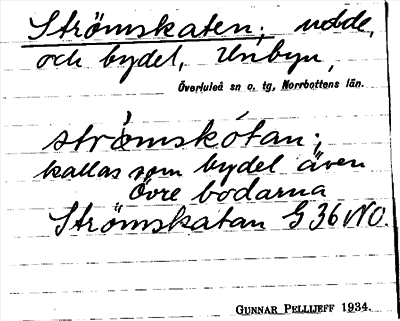 Strömskaten; udde,
och bydel, Unbyn,
Överluleå sn o. tg, Norrbottens län.
strö̀mskótan;
kallas som bydel även
Övre bodarna
Strömskatan G 36 NO.
GUNNAR PELLIJEFF 1934.